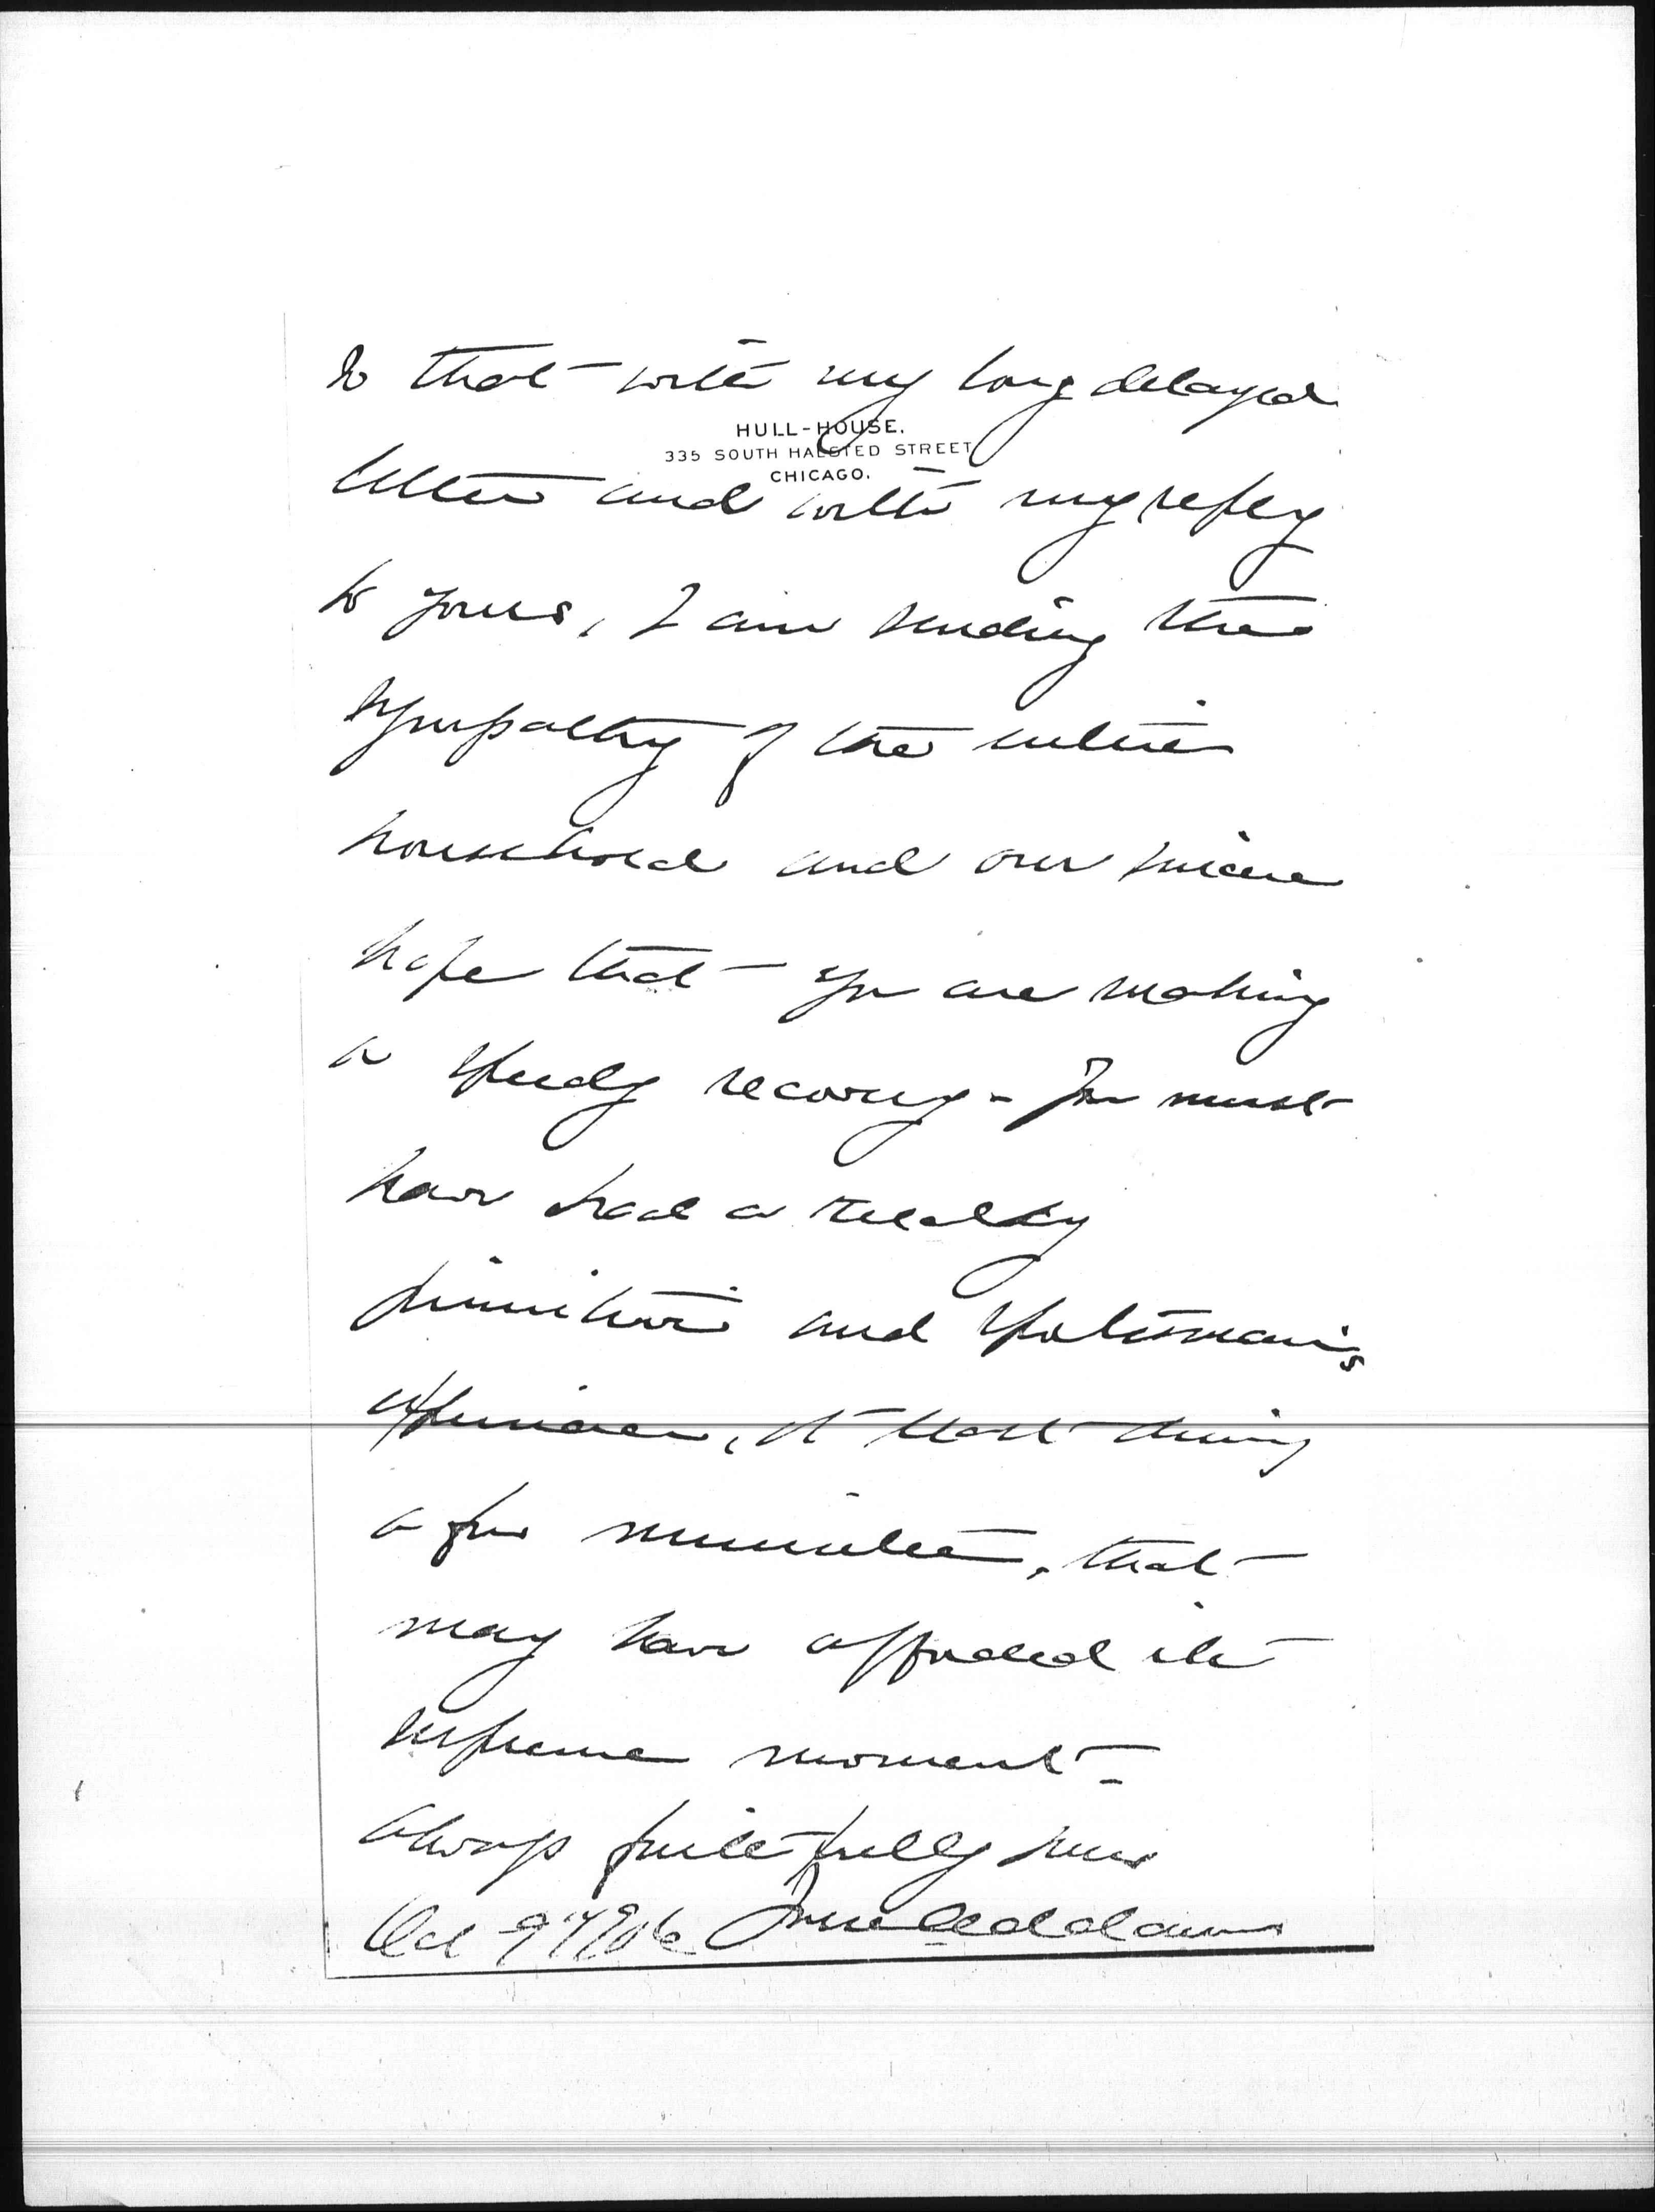 so that with my long delayed
HULL-HOUSE.
335 SOUTH HALSTED STREET
CHICAGO.
letter and with my reply
to yours, I am sending the
sympathy of the entire
household and our sincere
hope that you are making
a speedy recovery - You must
have had a really
primitive and
experience, at least during
a few minutes, that
may have afforded its
supreme moment -
always faithfully yours
Oct 9" 1906 Jane Addams